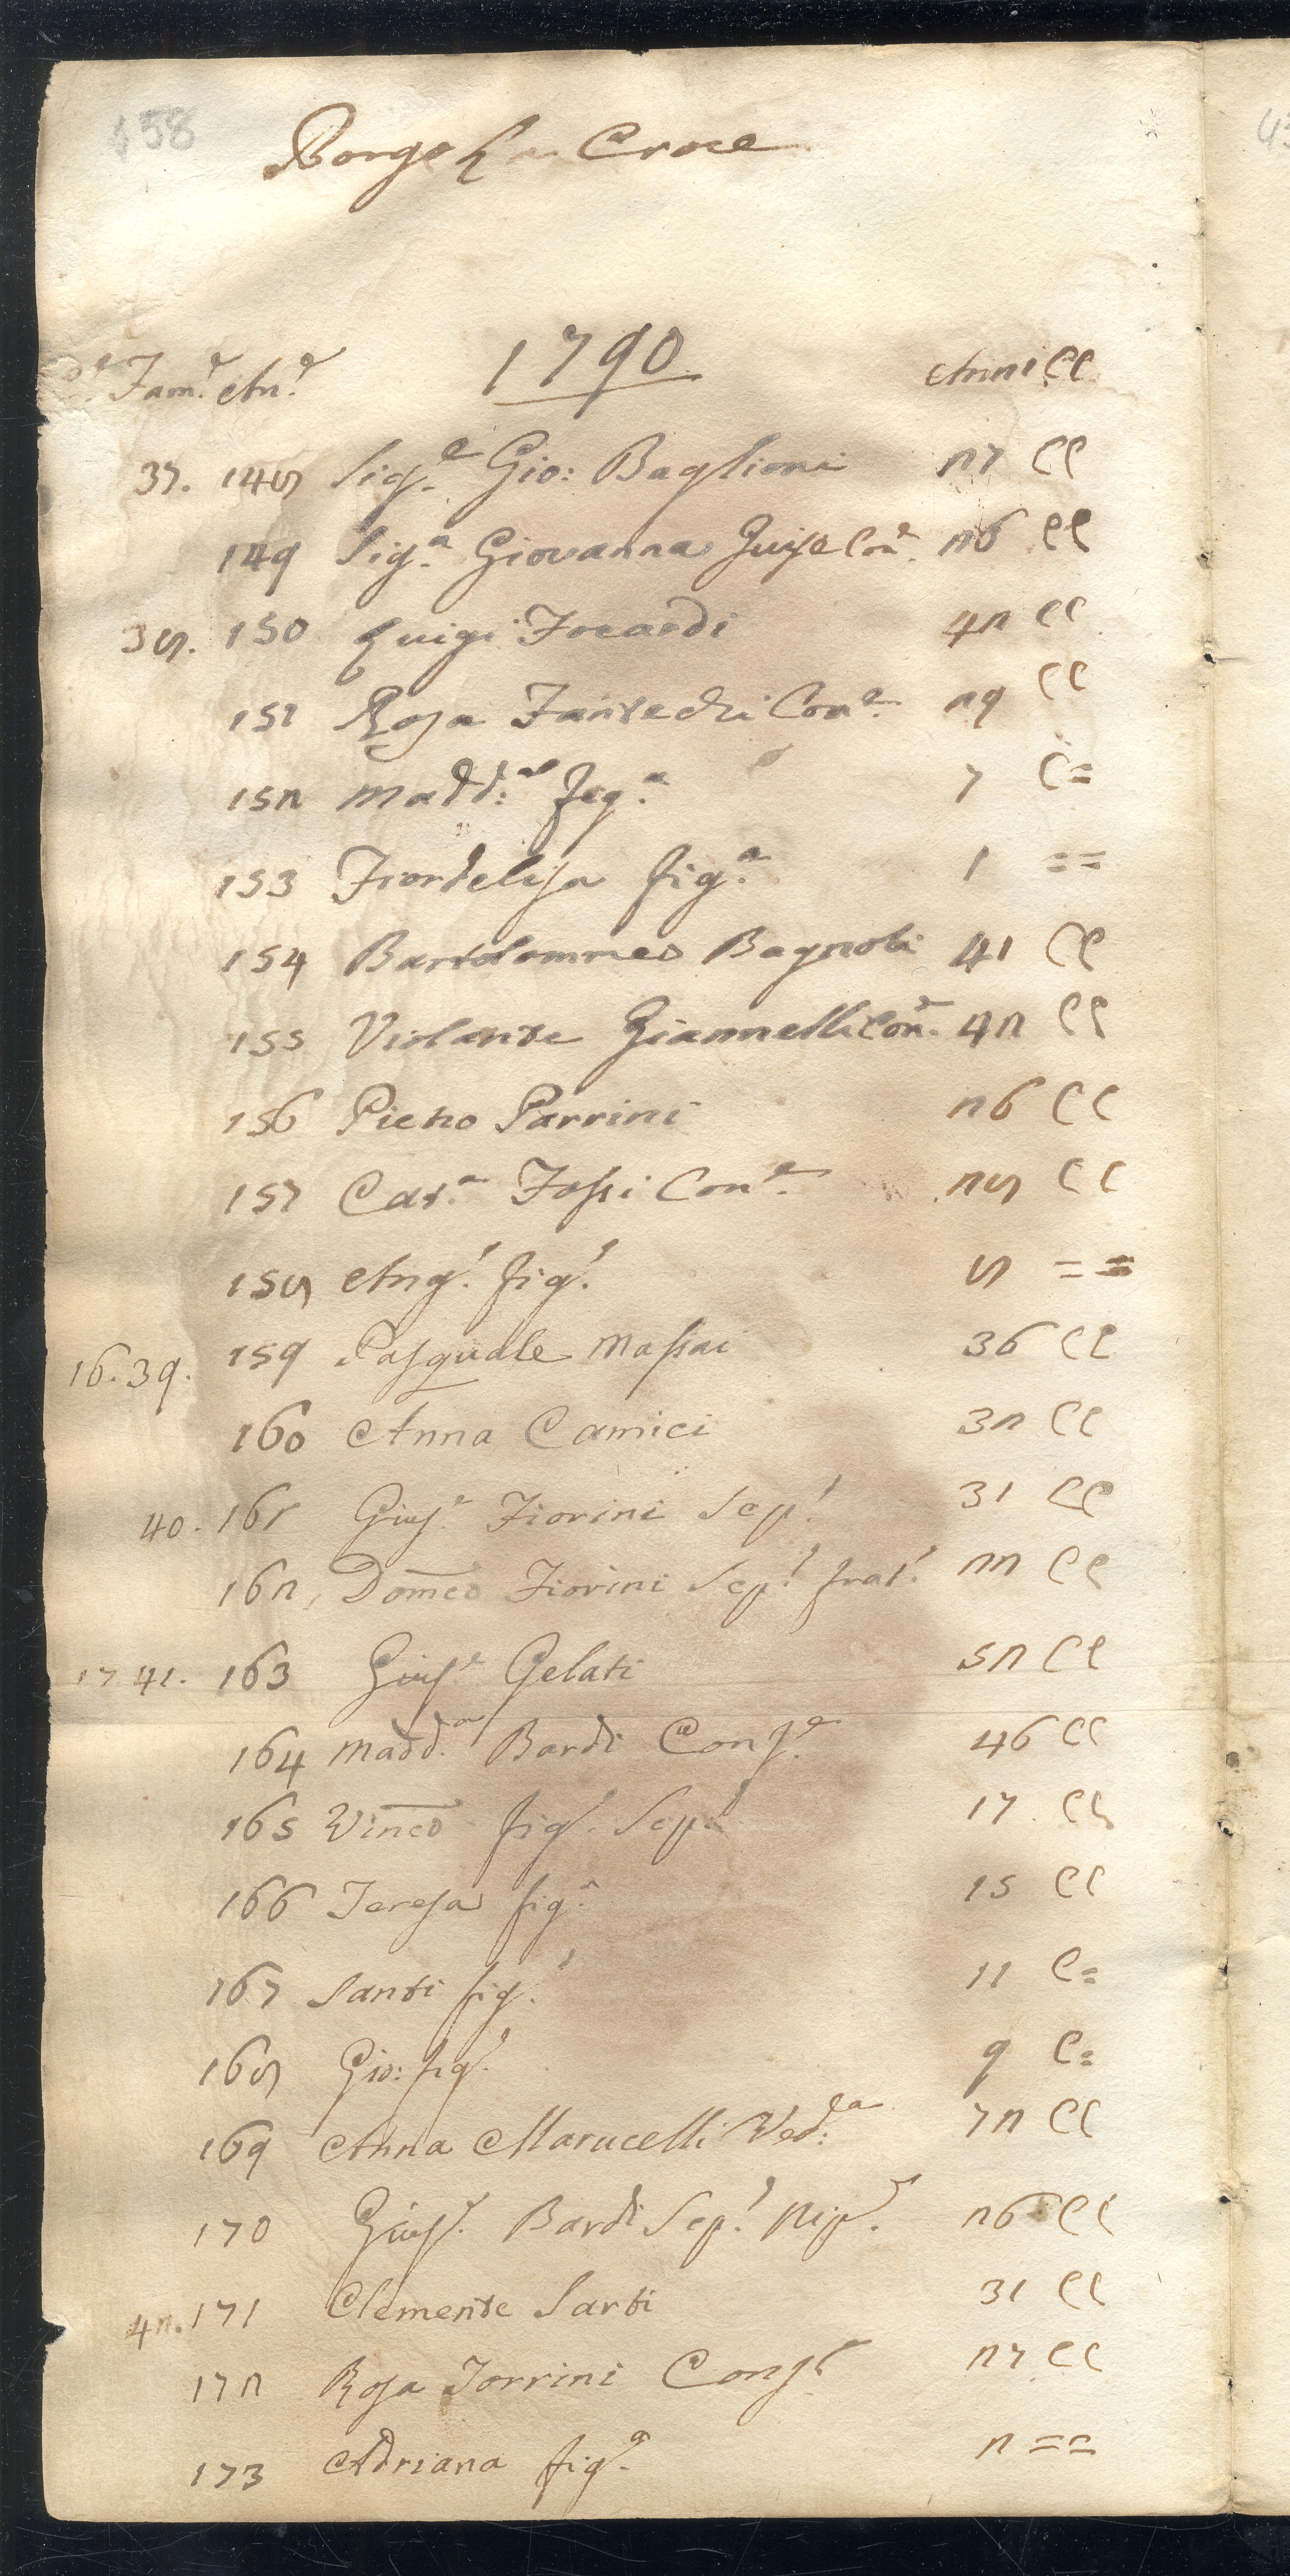 458
Borgo La Croce
1790
Fam.e An.e Anni CC
37. 148 Sig.e Gio: Baglioni 27 CC
149 Sig.a Giovanna Con.e 26 CC
38. 150 Luigi Focardi 42 CC
151 Rosa Fantechi Con.e 29 CC
152 Madd:a fig.a 7 C=
153 Fiordelisa fig.a 1 ==
154 Bartolommeo Bagnoli 41 CC
155 Violante Giannelli Con.e 42 CC
156 Pietro Parrini 26 CC
157 Cat.a Fossi Con.e 28 CC
158 Ang.l fig.l 8 ==
16. 39. 159 Pasquale Massai 36 CC
160 Anna Camici 32 CC
40. 161 Gius.e Fiorini Sep.l 31 CC
162 Domco Fiorini Sep.l frat.l 22 CC
17 41. 163 Gius.e Gelati 52 CC
164 Madd.a Bardi Cons.e 46 CC
165 Vinco fig.l Sep.l 17 CC
166 Teresa fig.a 15 CC
167 Santi fig.l 11 C=
168 Gio: fig.l 9 C=
169 Anna Marucelli Ved:a 72 CC
170 Gius.e Bardi Sep.l Nip.e 26 CC
42. 171 Clemente Sarti 31 CC
172 Rosa Torrini Cons.e 27 CC
173 Adriana fig.a 2 ==